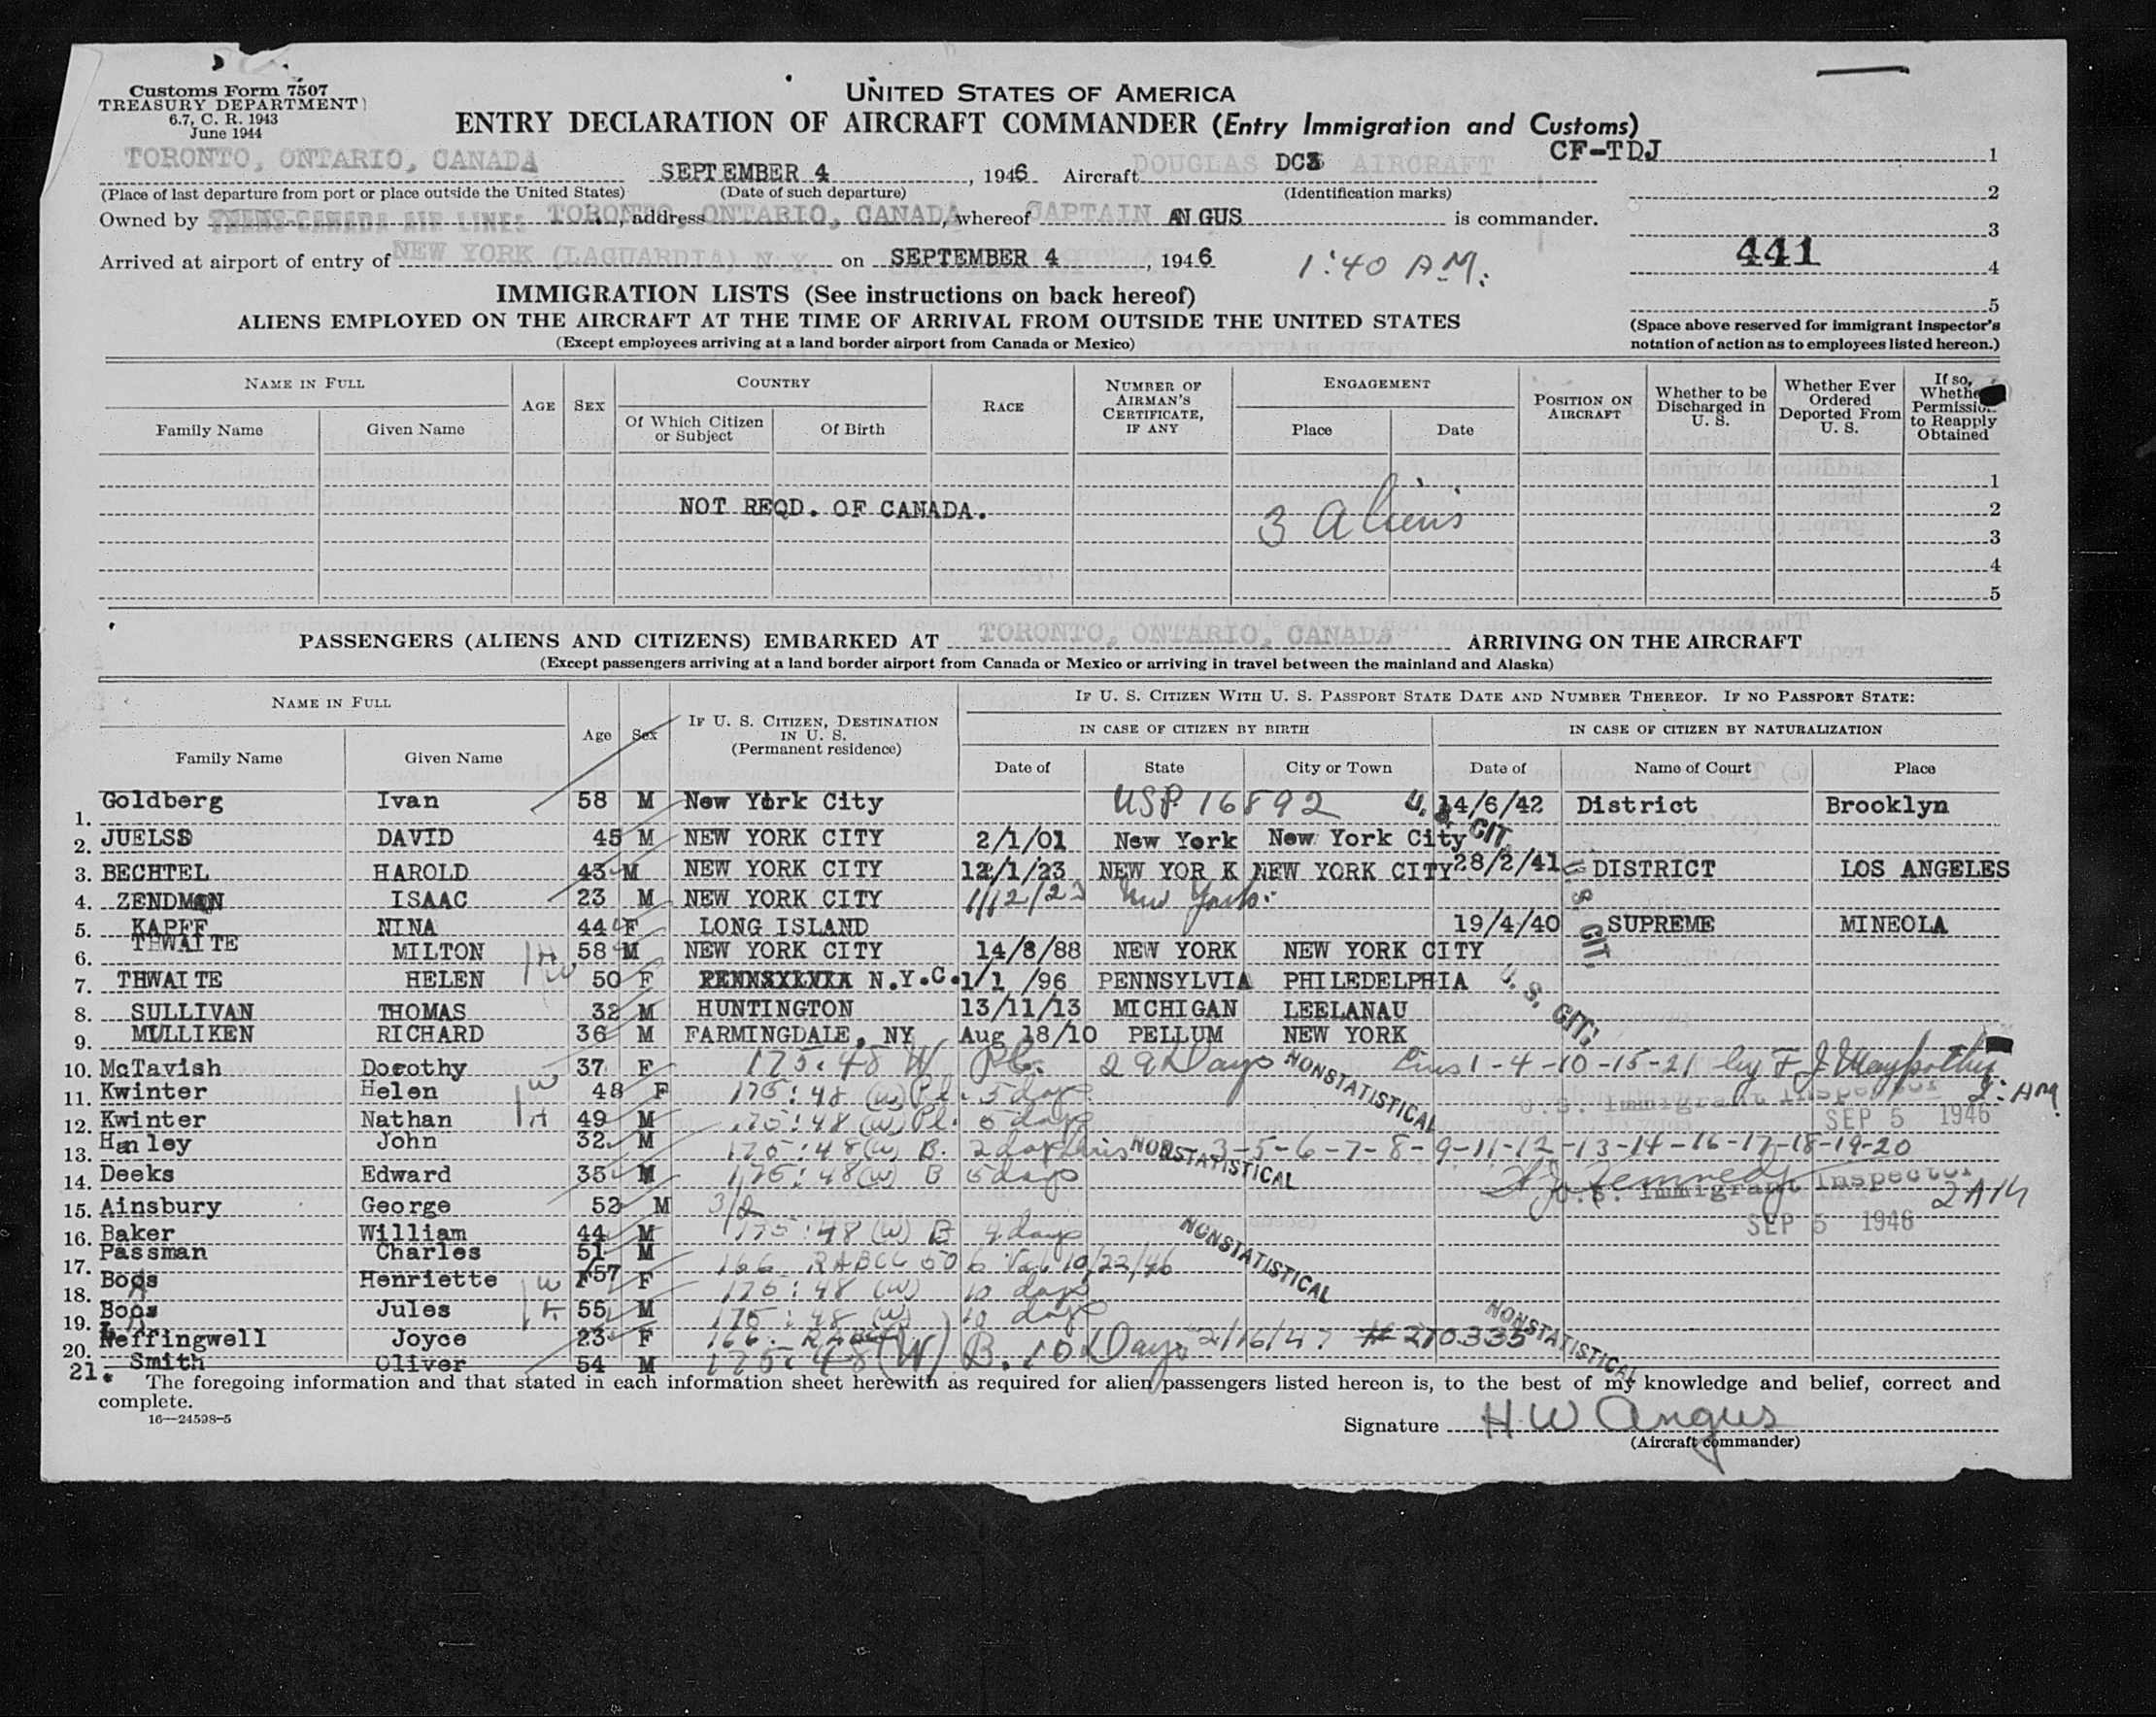 Customs Form 7507
TREASURY DEPARTMENT
6.7, C. R. 1943
June 1944
UNITED STATES OF AMERICA
ENTRY DECLARATION OF AIRCRAFT COMMANDER (Entry Immigration and Customs)
TORONTO, ONTARIO, CANADA SEPTEMBER 4, 1946 Aircraft DOUGLAS DC3 AIRCRAFT CF-TDJ 1
(Place of last departure from port or place outside the United States) (Date of such departure) (Identification marks) 2
Owned by TRANS-CANADA AIR LINES TORONTO, address ONTARIO, CANADA, whereof CAPTAIN ANGUS is commander. 3
Arrived at airport of entry of NEW YORK (LAGUARDIA) N.Y. on SEPTEMBER 4, 1946 1:40 AM. 441 4
5
IMMIGRATION LISTS (See instructions on back hereof)
ALIENS EMPLOYED ON THE AIRCRAFT AT THE TIME OF ARRIVAL FROM OUTSIDE THE UNITED STATES
(Except employees arriving at a land border airport from Canada or Mexico)
(Space above reserved for immigrant inspector's
notation of action as to employees listed hereon.)
NAME IN FULL AGE SEX COUNTRY RACE NUMBER OF AIRMAN'S CERTIFICATE, IF ANY ENGAGEMENT POSITION ON AIRCRAFT Whether to be Discharged in U. S. Whether Ever Ordered Deported From U. S. If so, Whether Permission to Reapply Obtained
Family Name Given Name Of Which Citizen or Subject Of Birth Place Date
1
NOT REQD. OF CANADA. 3 aliens 2
3
4
5
PASSENGERS (ALIENS AND CITIZENS) EMBARKED AT TORONTO, ONTARIO, CANADA ARRIVING ON THE AIRCRAFT
(Except passengers arriving at a land border airport from Canada or Mexico or arriving in travel between the mainland and Alaska)
NAME IN FULL Age Sex IF U. S. CITIZEN, DESTINATION IN U. S. (Permanent residence) IF U. S. CITIZEN WITH U. S. PASSPORT STATE DATE AND NUMBER THEREOF. IF NO PASSPORT STATE:
IN CASE OF CITIZEN BY BIRTH IN CASE OF CITIZEN BY NATURALIZATION
Family Name Given Name Date of State City or Town Date of Name of Court Place
1. Goldberg Ivan 58 M New York City USP 16892 14/6/42 District Brooklyn
U. S. CIT.
2. JUELSS DAVID 45 M NEW YORK CITY 2/1/01 New York New York City
3. BECHTEL HAROLD 43 M NEW YORK CITY 12/1/23 NEW YOR K NEW YORK CITY 28/2/41 DISTRICT LOS ANGELES
U. S. CIT.
4. ZENDMAN ISAAC 23 M NEW YORK CITY 1/12/23 New York.
5. KAPFF NINA 44 F LONG ISLAND 19/4/40 SUPREME MINEOLA
6. THWAITE MILTON H 58 M NEW YORK CITY 14/8/88 NEW YORK NEW YORK CITY
7. THWAITE HELEN W 50 F N.Y.C. 1/1 /96 PENNSYLVIA PHILEDELPHIA
U. S. CIT.
8. SULLIVAN THOMAS 32 M HUNTINGTON 13/11/13 MICHIGAN LEELANAU
9. MULLIKEN RICHARD 36 M FARMINGDALE, NY Aug 18/10 PELLUM NEW YORK
10. McTavish Dorothy 37 F 175:48 W Pl. 29 Days NONSTATISTICAL Lins 1-4-10-15-21 by F J
11. Kwinter Helen W 48 F 175:48 (W) Pl. 5 days U. S. Immigrant Inspector 2:AM
12. Kwinter Nathan H 49 M 175:48 (W) Pl. 5 days SEP 5 1946
13. Hanley John 32 M 175:48 (W) B. 2 days Lins 3-5-6-7-8-9-11-12-13-14-16-17-18-19-20
NONSTATISTICAL
14. Deeks Edward 35 M 175:48 (W) B 5 days Kennedy U. S. Immigrant Inspector
15. Ainsbury George 52 M 3/2 2 AM
16. Baker William 44 M 175:48 (W) B 4 days NONSTATISTICAL SEP 5 1946
17. Passman Charles 51 M 166 10/22/46
18. Boas Henriette W F57 F 175:48 (W) 10 days
19. Boas Jules H 55 M 175:48 (W) 10 days
20. Leffingwell Joyce 23 F 166. 2/16/47 # 270335 NONSTATISTICAL
21. Smith Oliver 54 M 175:48 (W) B. 10 Days
The foregoing information and that stated in each information sheet herewith as required for alien passengers listed hereon is, to the best of my knowledge and belief, correct and
complete.
16—24598-5
Signature H W Angus
(Aircraft commander)